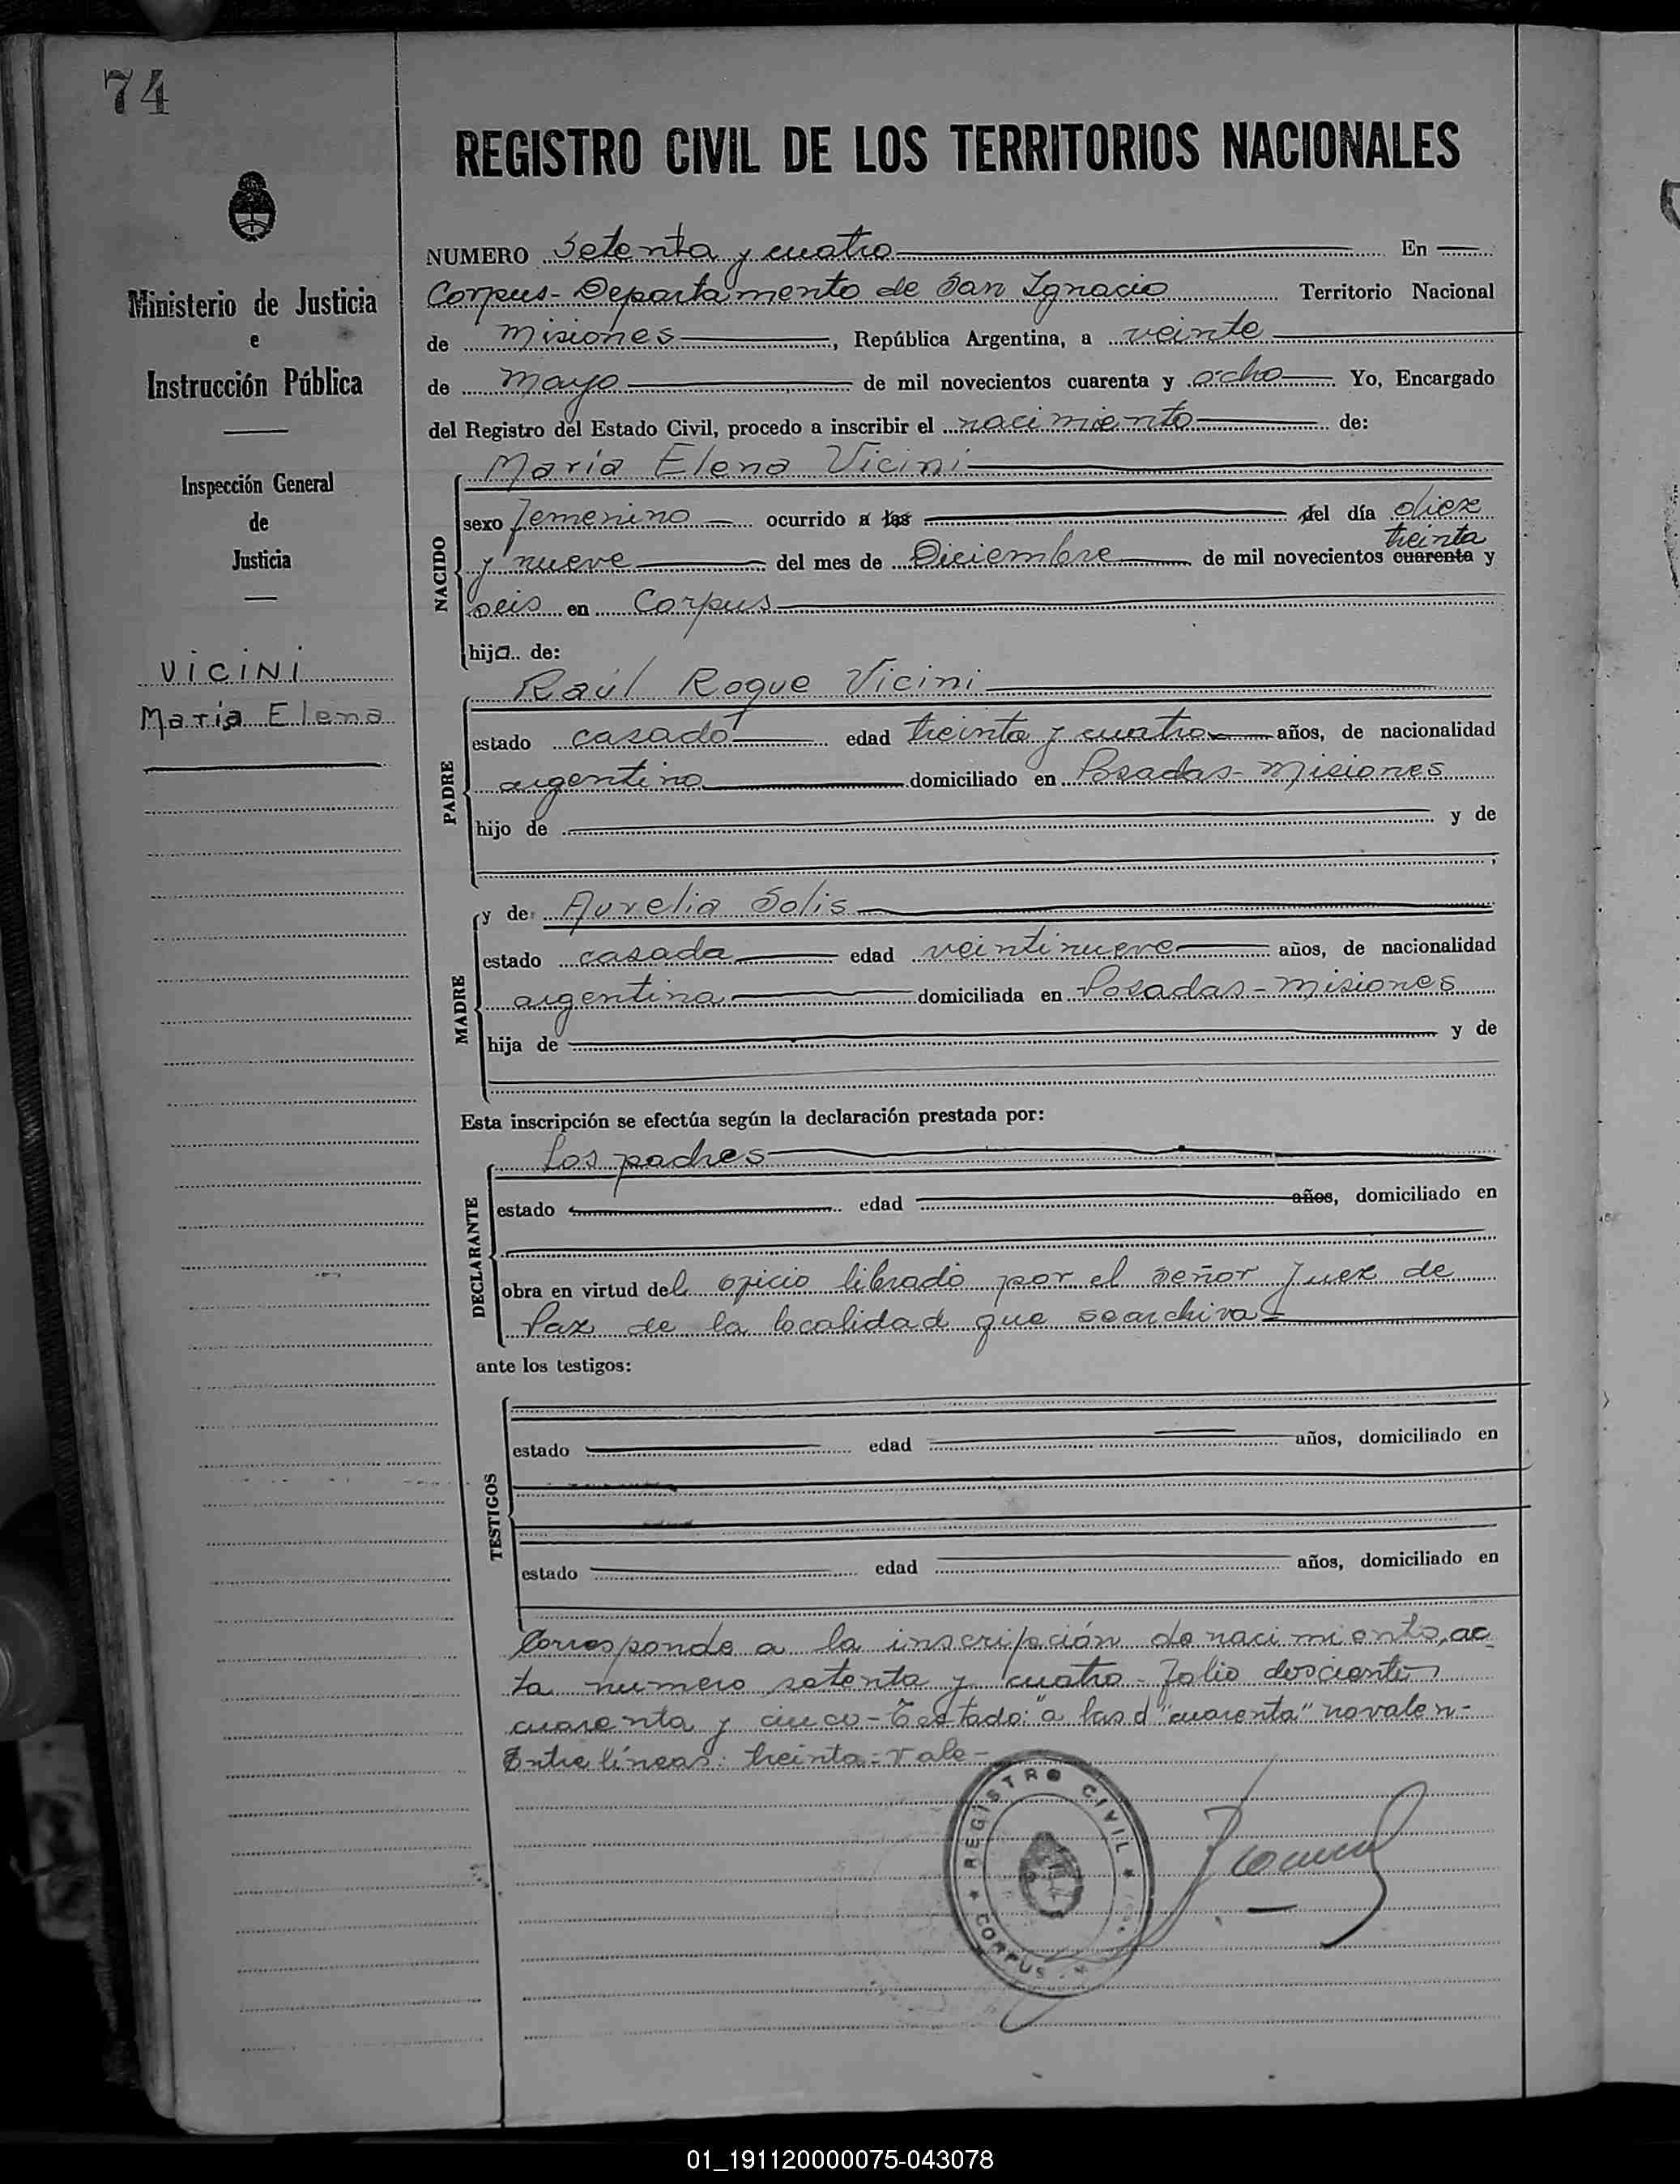 74
REGISTRO CIVIL DE LOS TERRITORIOS NACIONALES
Ministerio de Justicia
e
Instrucción Pública
Inspección General
de
Justicia
VICINI
María Elena
NUMERO Setenta y cuatro En
Corpus - Departamento de San Ignacio Territorio Nacional
de Misiones, República Argentina, a veinte
de mayo de mil novecientos cuarenta y ocho Yo, Encargado
del Registro del Estado Civil, procedo a inscribir el nacimiento de:
NACIDO
María Elena Vicini
sexo femenino ocurrido a las del día diez
treinta
y nueve del mes de Diciembre de mil novecientos cuarenta y
seis en Corpus
hija de:
PADRE
Raúl Roque Vicini
estado casado edad treinta y cuatro años, de nacionalidad
argentino domiciliado en Posadas - Misiones
hijo de y de
MADRE
y de Aurelia Solis
estado casada edad veintinueve años, de nacionalidad
argentina domiciliada en Posadas - Misiones
hija de y de
Esta inscripción se efectúa según la declaración prestada por:
DECLARANTE
Los padres
estado edad años, domiciliado en
obra en virtud del oficio librado por el señor Juez de
Paz de la localidad que se archiva
ante los testigos:
TESTIGOS
estado edad años, domiciliado en
estado edad años, domiciliado en
Corresponde a la inscripción de nacimiento, ac
ta numero setenta y cuatro - folio doscientos
cuarenta y cinco - Testado: "a las d "cuarenta" no valen -
Entre líneas: treinta - Vale -
REGISTRO CIVIL
CORPUS
01_191120000075-043078